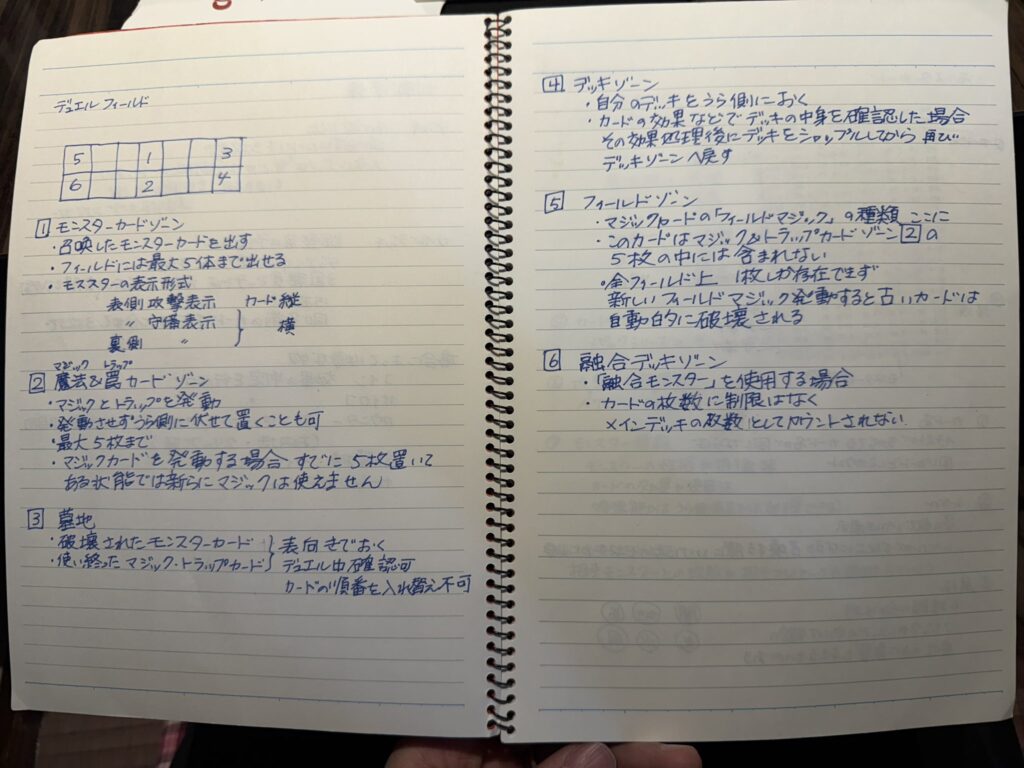 デュエルフィールド
5 1 3
6 2 4
1 モンスターカードゾーン
・召喚したモンスターカードを出す
・フィールドには最大5体まで出せる
・モススターの表示形式
表側攻撃表示 カード縦
〃 守備表示 横
裏側 〃
マジック トラップ
2 魔法&罠カードゾーン
・マジックとトラップを発動
・発動させずうら側に伏せて置くことも可
・最大5枚まで
・マジックカードを発動する場合 すでに5枚置いて
ある状態では新らにマジックは使えません
3 墓地
・破壊されたモンスターカード 表向きでおく
・使い終ったマジック・トラップカード デュエル中確認可
カードの順番を入れ替え不可
4 デッキゾーン
・自分のデッキをうら側におく
・カードの効果などでデッキの中身を確認した場合
その効果処理後にデッキをシャッフルしてから再び
デッキゾーンへ戻す
5 フィールドゾーン
・マジックカードの「フィールドマジック」の種類 ここに
・このカードはマジック&トラップカードゾーン2の
5枚の中には含まれない
・全フィールド上 1枚しか存在できず
新しいフィールドマジック発動すると古いカードは
自動的に破壊される
6 融合デッキゾーン
・「融合モンスター」を使用する場合
・カードの枚数に制限はなく
メインデッキの枚数としてカウントされない